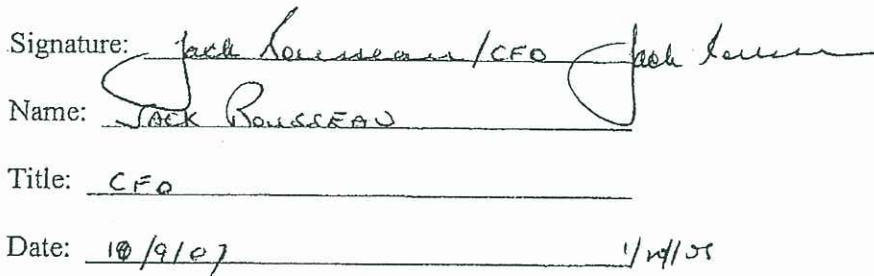 Signature: Jack Rousseau / CFO Jack
Name: JACK ROUSSEAU
Title: CFO
Date: 10/9/07